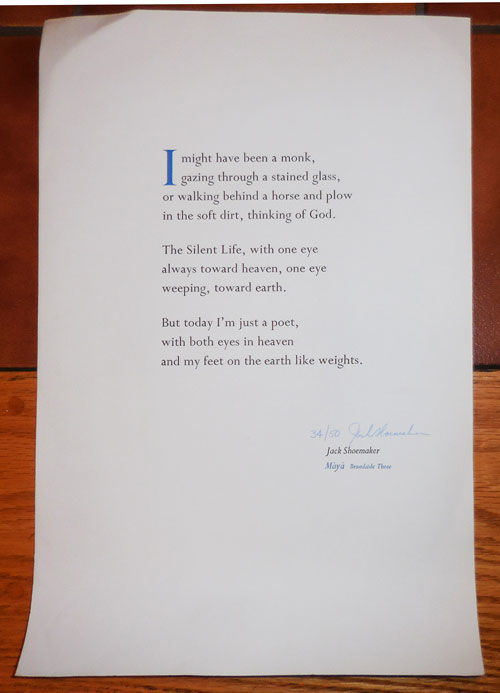 I might have been a monk,
gazing through a stained glass,
or walking behind a horse and plow
in the soft dirt, thinking of God.
The Silent Life, with one eye
always toward heaven, one eye
weeping, toward earth.
But today I'm just a poet,
with both eyes in heaven
and my feet on the earth like weights.
34/50 Jack Shoemaker
Jack Shoemaker
Māyā Broadside Three